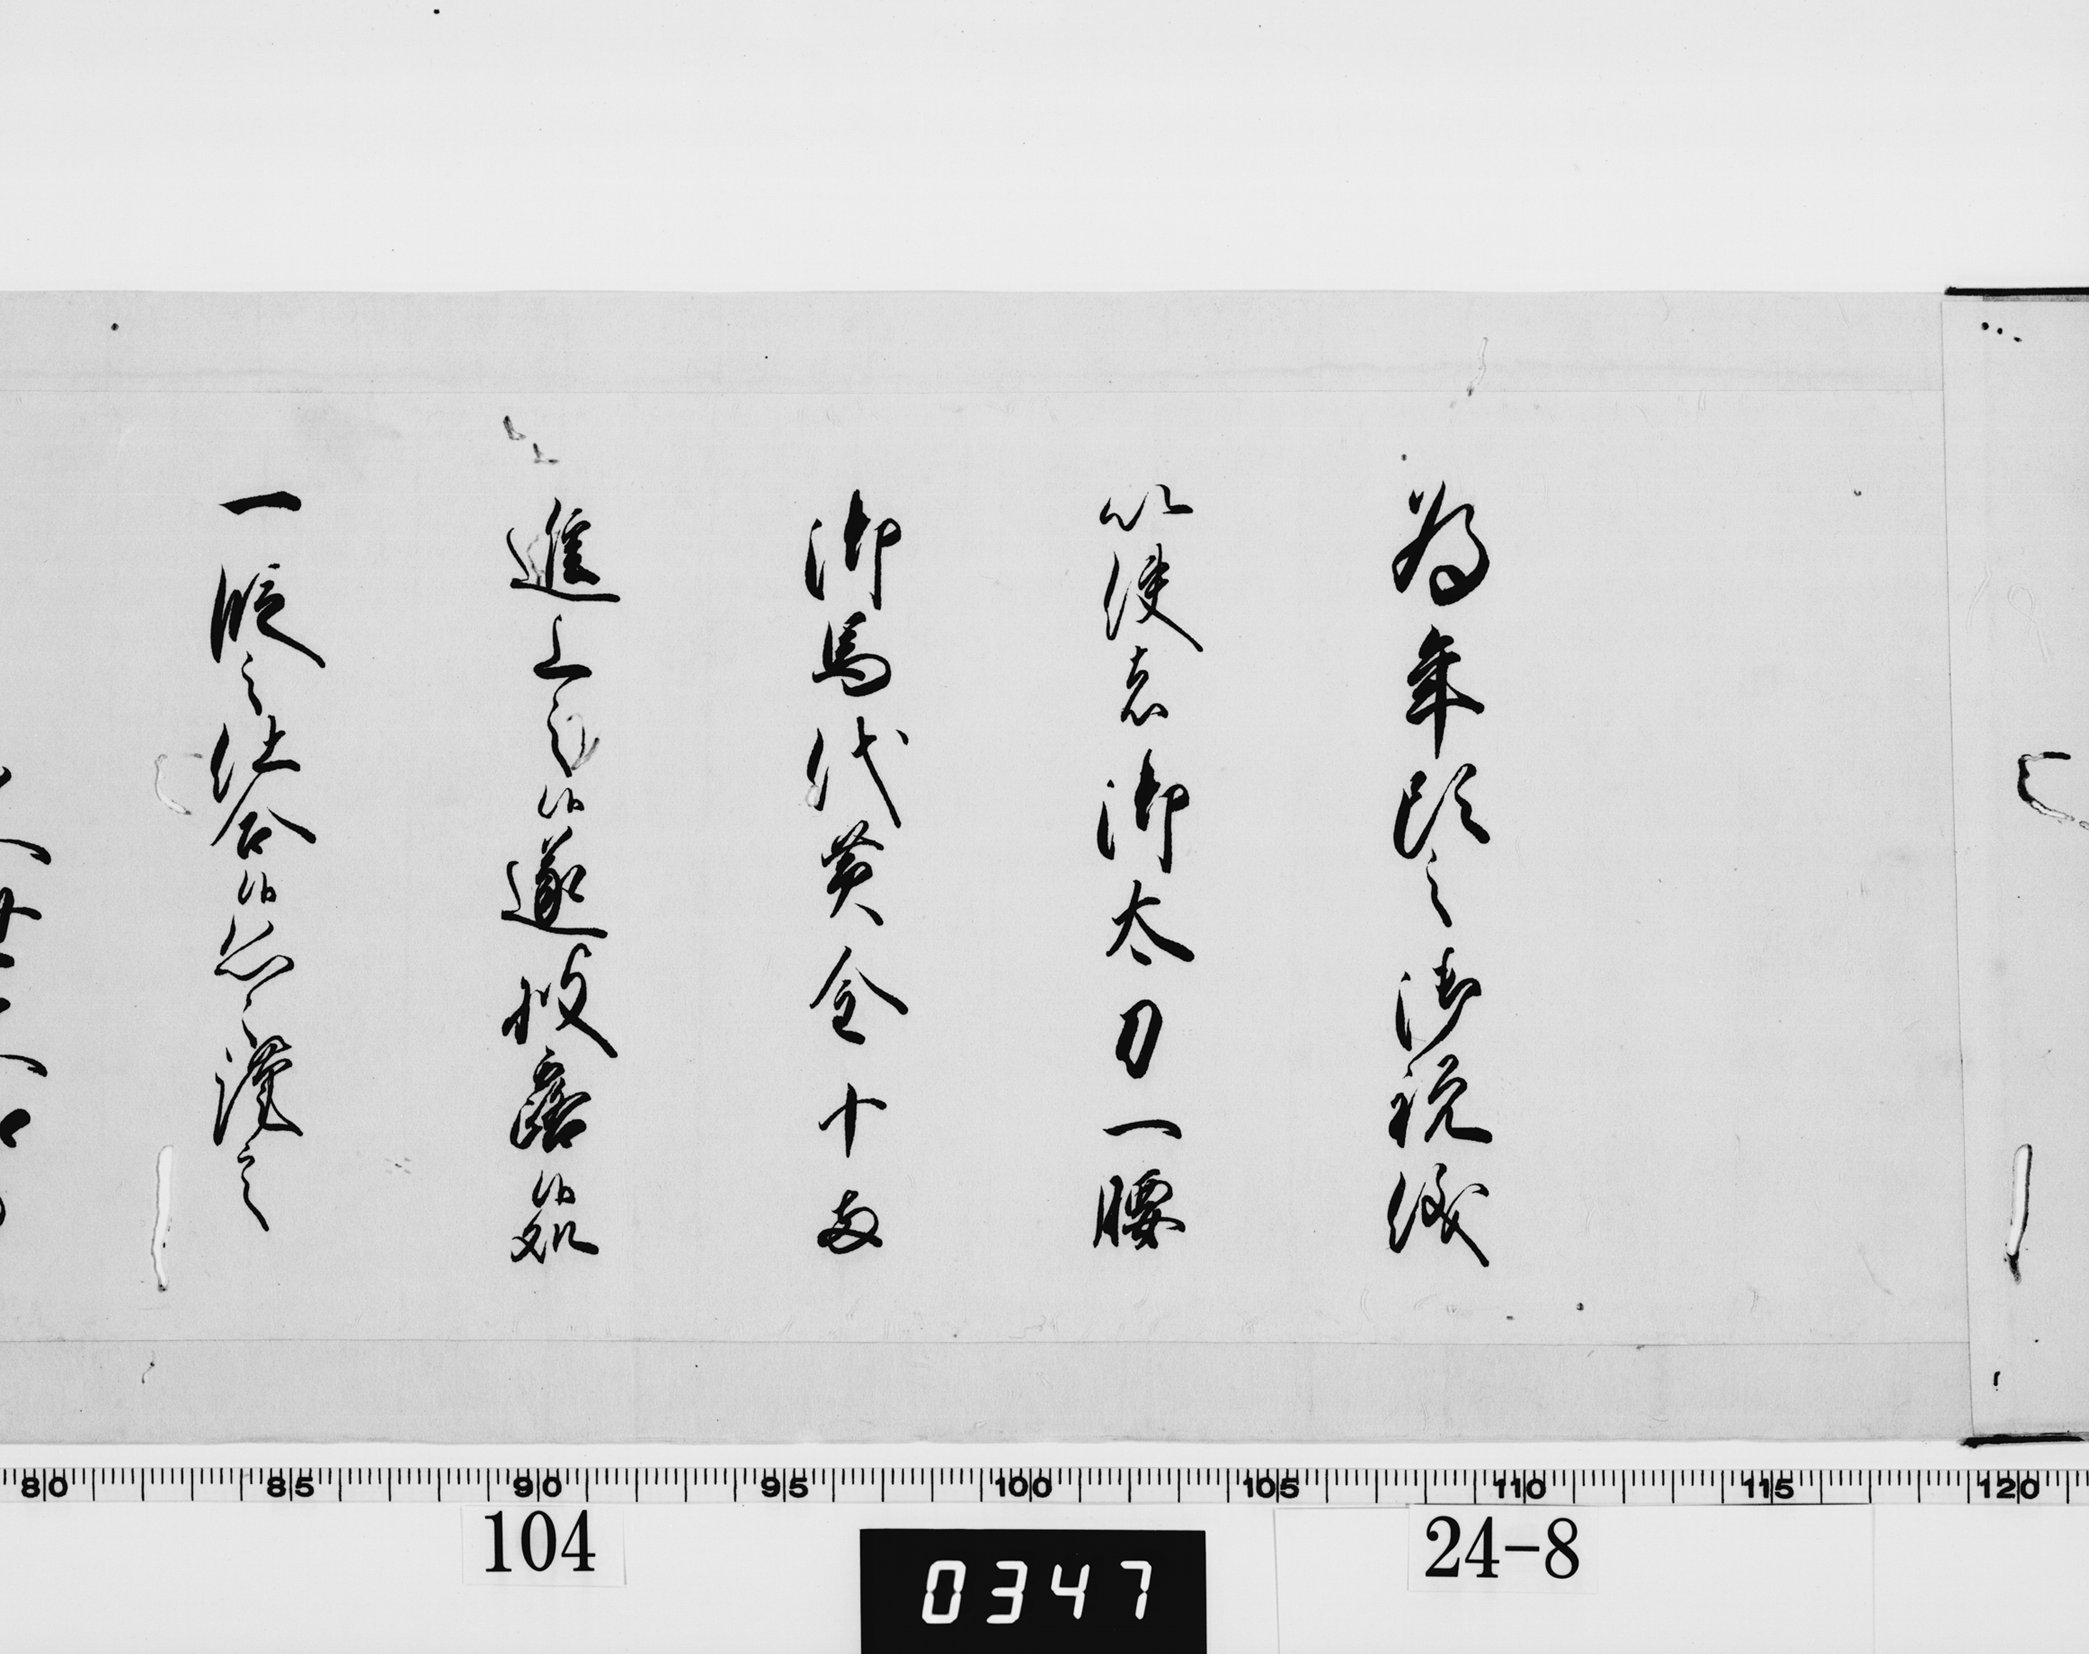 為年頭之御祝儀
以使者御太刀一腰
御馬代黄金十両
進上之候遂披露候処
一段之仕合候恐々謹言
80 85 90 95 100 105 110 115 120
104
0347
24-8